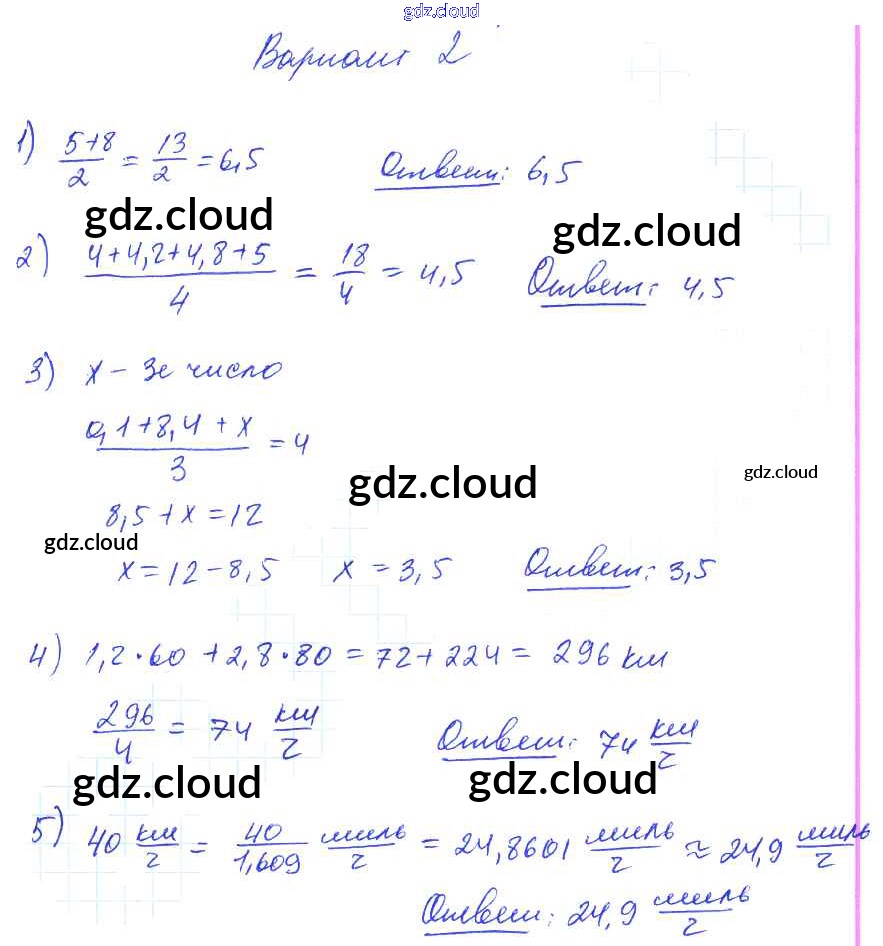 gdz.cloud
Вариант 2
1) (5+8)/2 = 13/2 = 6,5 Ответ: 6,5
gdz.cloud
gdz.cloud
2) (4+4,2+4,8+5)/4 = 18/4 = 4,5 Ответ: 4,5
3) x – 3е число
(0,1+8,4+x)/3 = 4
gdz.cloud
gdz.cloud
8,5+x=12
gdz.cloud
x=12-8,5 x=3,5 Ответ: 3,5
4) 1,2·60+2,8·80=72+224=296 км
296/4 = 74 км/ч Ответ: 74 км/ч
gdz.cloud
gdz.cloud
5) 40 км/ч = 40/1,609 миль/ч = 24,8601 миль/ч ≈ 24,9 миль/ч
Ответ: 24,9 миль/ч